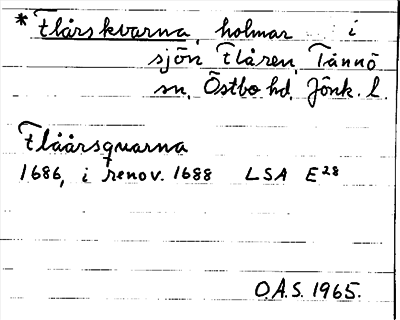 *Flårskvarna, holmar i
sjön Flåren, Tånnö
sn, Östbo hd, Jönk. l.
Flåårsquarna
1686, i renov. 1688 LSA E28
O.A.S. 1965.